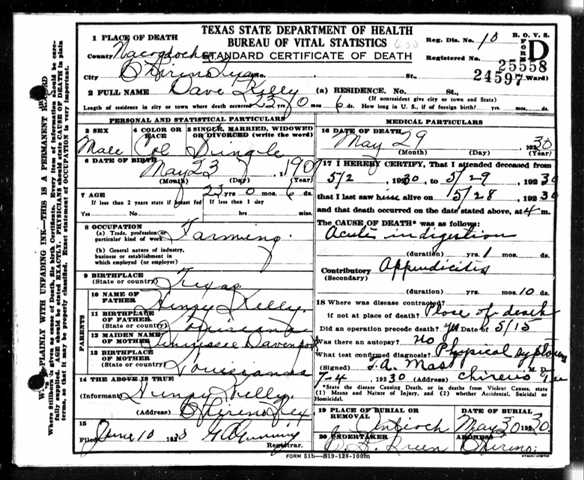 TEXAS STATE DEPARTMENT OF HEALTH
BUREAU OF VITAL STATISTICS
STANDARD CERTIFICATE OF DEATH
B. O. V. S.
FORM D
Reg. Dis. No. 10
Registered No. 25558
24597
1 PLACE OF DEATH
County Nacogdoches
City Chireno Texas St. Ward)
2 FULL NAME Dave Kelly
(a) RESIDENCE. No. St.,
(If nonresident give city or town and State)
Length of residence in city or town where death occurred 23 yrs 0 mos 6 ds. How long in U. S., if of foreign birth? yrs. mos. ds.
PERSONAL AND STATISTICAL PARTICULARS
3 SEX
Male
4 COLOR OR RACE
Col
5 SINGLE, MARRIED, WIDOWED OR DIVORCED (write the word)
Single
6 DATE OF BIRTH
May 23 1907
(Month) (Day) (Year)
7 AGE
23 yrs 0 mos 6 ds
If less than 2 years state if breast fed
If less than 1 day
Yes No hrs. min.
8 OCCUPATION
(a) Trade, profession or particular kind of work
Farming
(b) General nature of industry, business or establishment in which employed (or employer)
9 BIRTHPLACE
(State or country) Texas
PARENTS
10 NAME OF FATHER Henry Kelly
11 BIRTHPLACE OF FATHER
(State or country) Louisiana
12 MAIDEN NAME OF MOTHER Tennessee Davenport
13 BIRTHPLACE OF MOTHER
(State or country) Louisianna
14 THE ABOVE IS TRUE
(Informant) Henry Kelly
(Address) Chireno Tex
15
Filed June 10 1930
Registrar.
MEDICAL PARTICULARS
16 DATE OF DEATH
May 29 1930
(Month) (Day) (Year)
17 I HEREBY CERTIFY, That I attended deceased from
5/2 1930 to 5/29, 1930
that I last saw him alive on 5/28, 1930
and that death occurred on the date stated above, at 4 m.
The CAUSE OF DEATH* was as follows:
Acute indigestion
(duration) yrs. 1 mos. ds.
Contributory Appendicitis
(Secondary)
(duration) yrs. mos. 10 ds.
18 Where was disease contracted
if not at place of death? Place of death
Did an operation precede death? yes Date of 5/15
Was there an autopsy? no
What test confirmed diagnosis? Physical
(Signed) T. A. Mast M. D.
7-4, 1930 (Address) Chireno Tex
*State the Disease Causing Death, or in deaths from Violent Causes, state (1) Means and Nature of Injury, and (2) whether Accidental, Suicidal or Homicidal.
19 PLACE OF BURIAL OR REMOVAL
Antioch
DATE OF BURIAL
May 30 1930
20 UNDERTAKER
Green
ADDRESS
Chireno
FORM 515
WRITE PLAINLY WITH UNFADING INK—THIS IS A PERMANENT RECORD